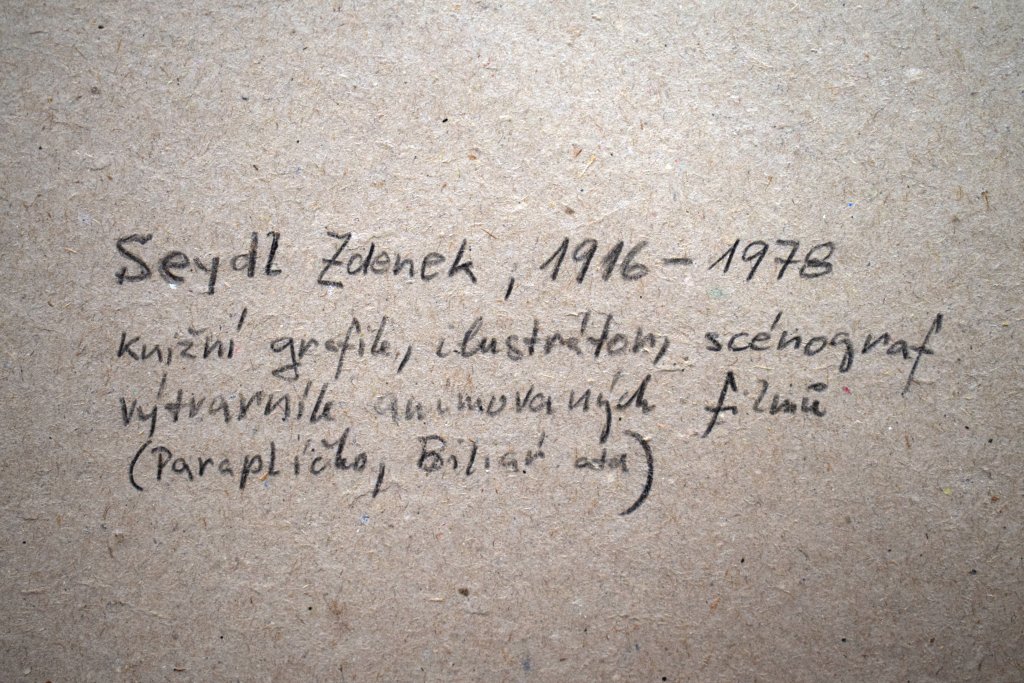 Seydl Zdenek, 1916-1978
knižní grafik, ilustrátor, scénograf
výtvarník animovaných filmů
(Paraplíčko, Biliár atd)